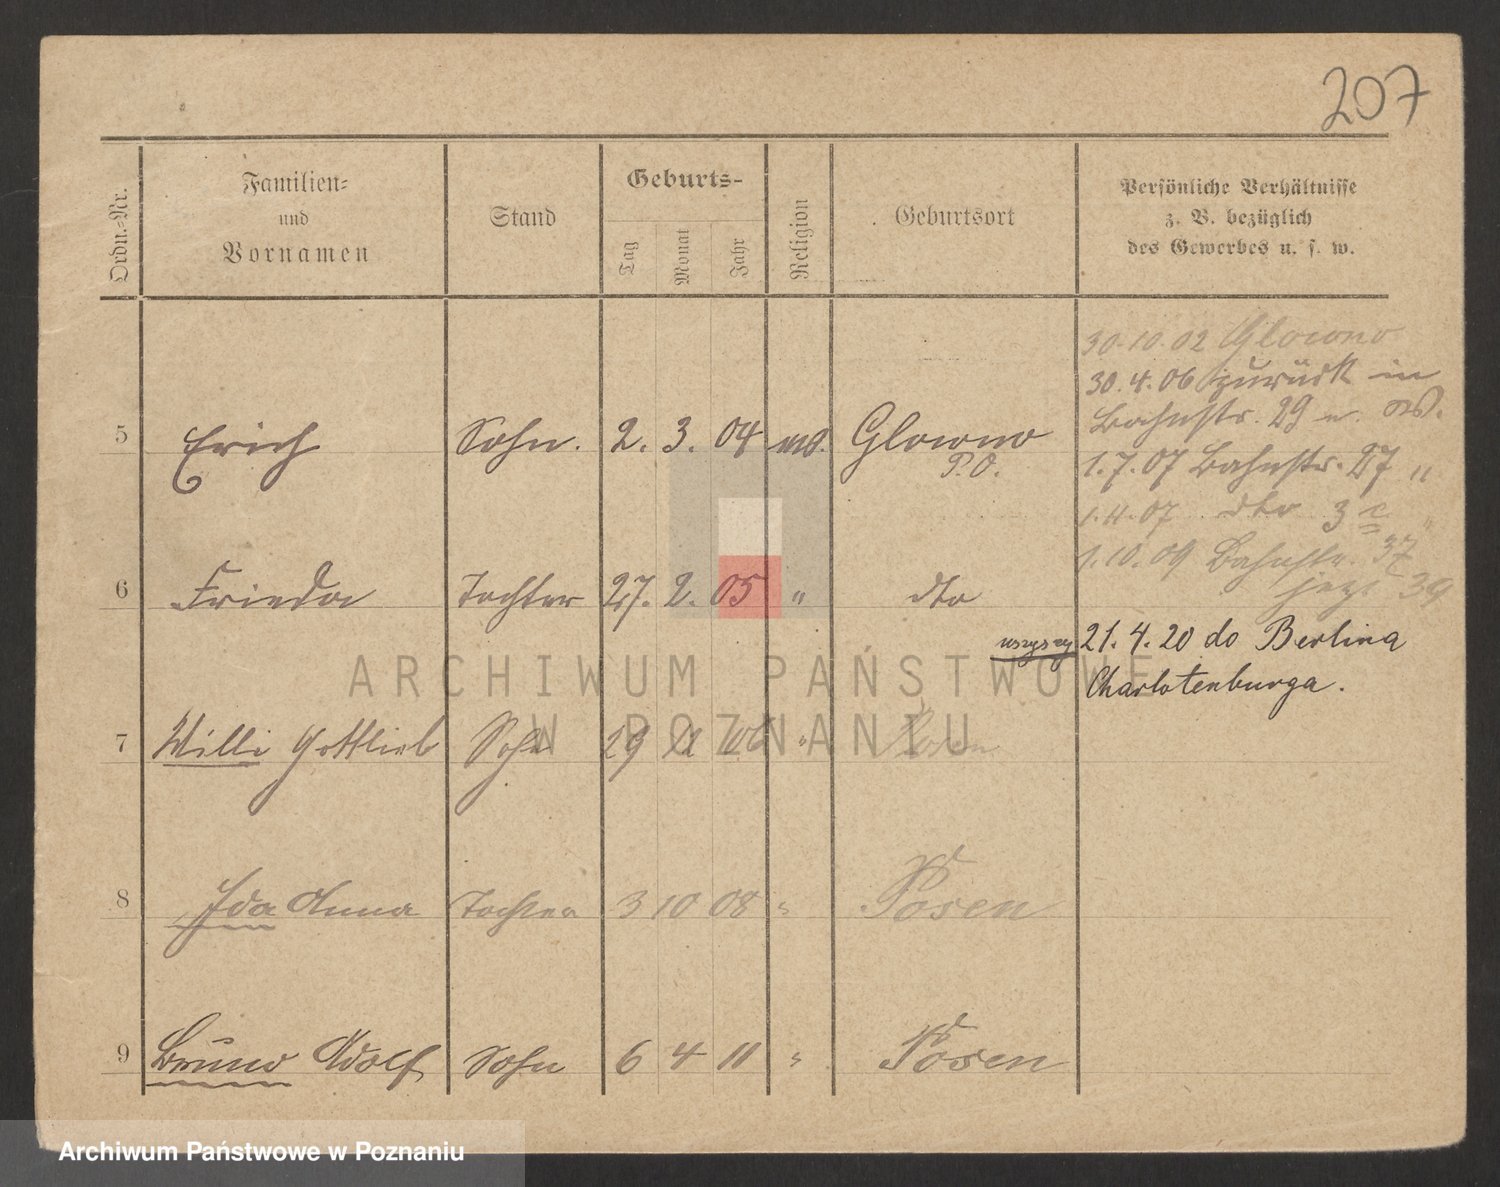 207
Ordn.-Nr.
Familien-
und
Vornamen
Stand
Geburts-
Tag
Monat
Jahr
Religion
Geburtsort
Persönliche Verhältnisse
z. B. bezüglich
des Gewerbes u. s. w.
30.10.02 Glowno
30.4.06 zurück in
Bahnstr. 29
5 Erich Sohn. 2. 3. 04 Glowno
P.O.
1.7.07 Bahnstr. 27 "
1.4.07 dto 3 c
1.10.09 Bahnstr. 37
jezt 39
6 Frieda Tochter 27. 2. 05 " dto
21.4.20 do Berlina
Charlotenburga.
7 Willi Gottlieb Sohn 29 11 06 " Posen
8 Ida Anna Tochter 3 10 08 " Posen
9 Bruno Adolf Sohn 6 4 11 " Posen
ARCHIWUM PAŃSTWOWE
W POZNANIU
Archiwum Państwowe w Poznaniu